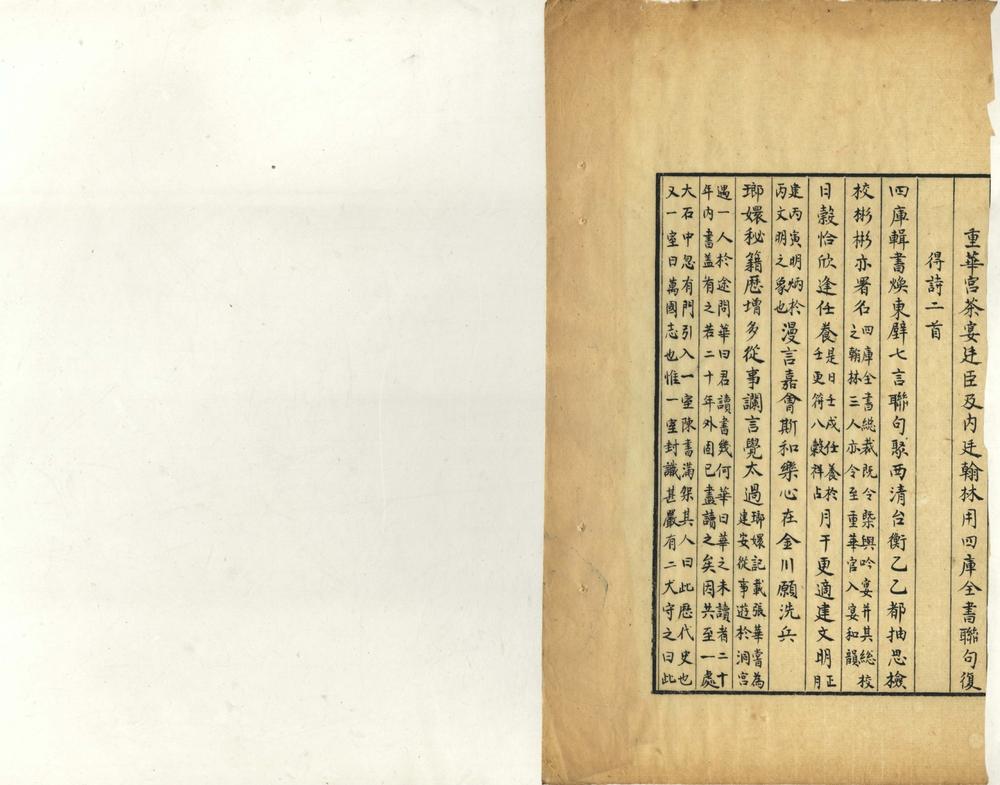 重華宮茶宴廷臣及內廷翰林用四庫全書聯句復
得詩二首
四庫輯書煥東壁七言聯句聚西清台衡乙乙都抽思檢
校彬彬亦署名四庫全書総裁既令槩與吟宴并其総校之翰林三人亦令至重華宮入宴和韻
日穀恰欣逢任養是日壬戌任養於壬更符八穀祥占月干更適建文明正月
建丙寅明炳於丙文明之象也漫言嘉會斯和樂心在金川願洗兵
瑯嬛秘籍歴增多從事讕言覺太過瑯嬛記載張華嘗為建安從事遊於洞宮
遇一人於途問華曰君讀書幾何華曰華之未讀者二十年内書蓋有之若二十年外固已盡讀之矣因共至一處
大石中忽有門引入一室陳書滿架其人曰此歴代史也又一室曰萬國志也惟一室封識甚嚴有二犬守之曰此